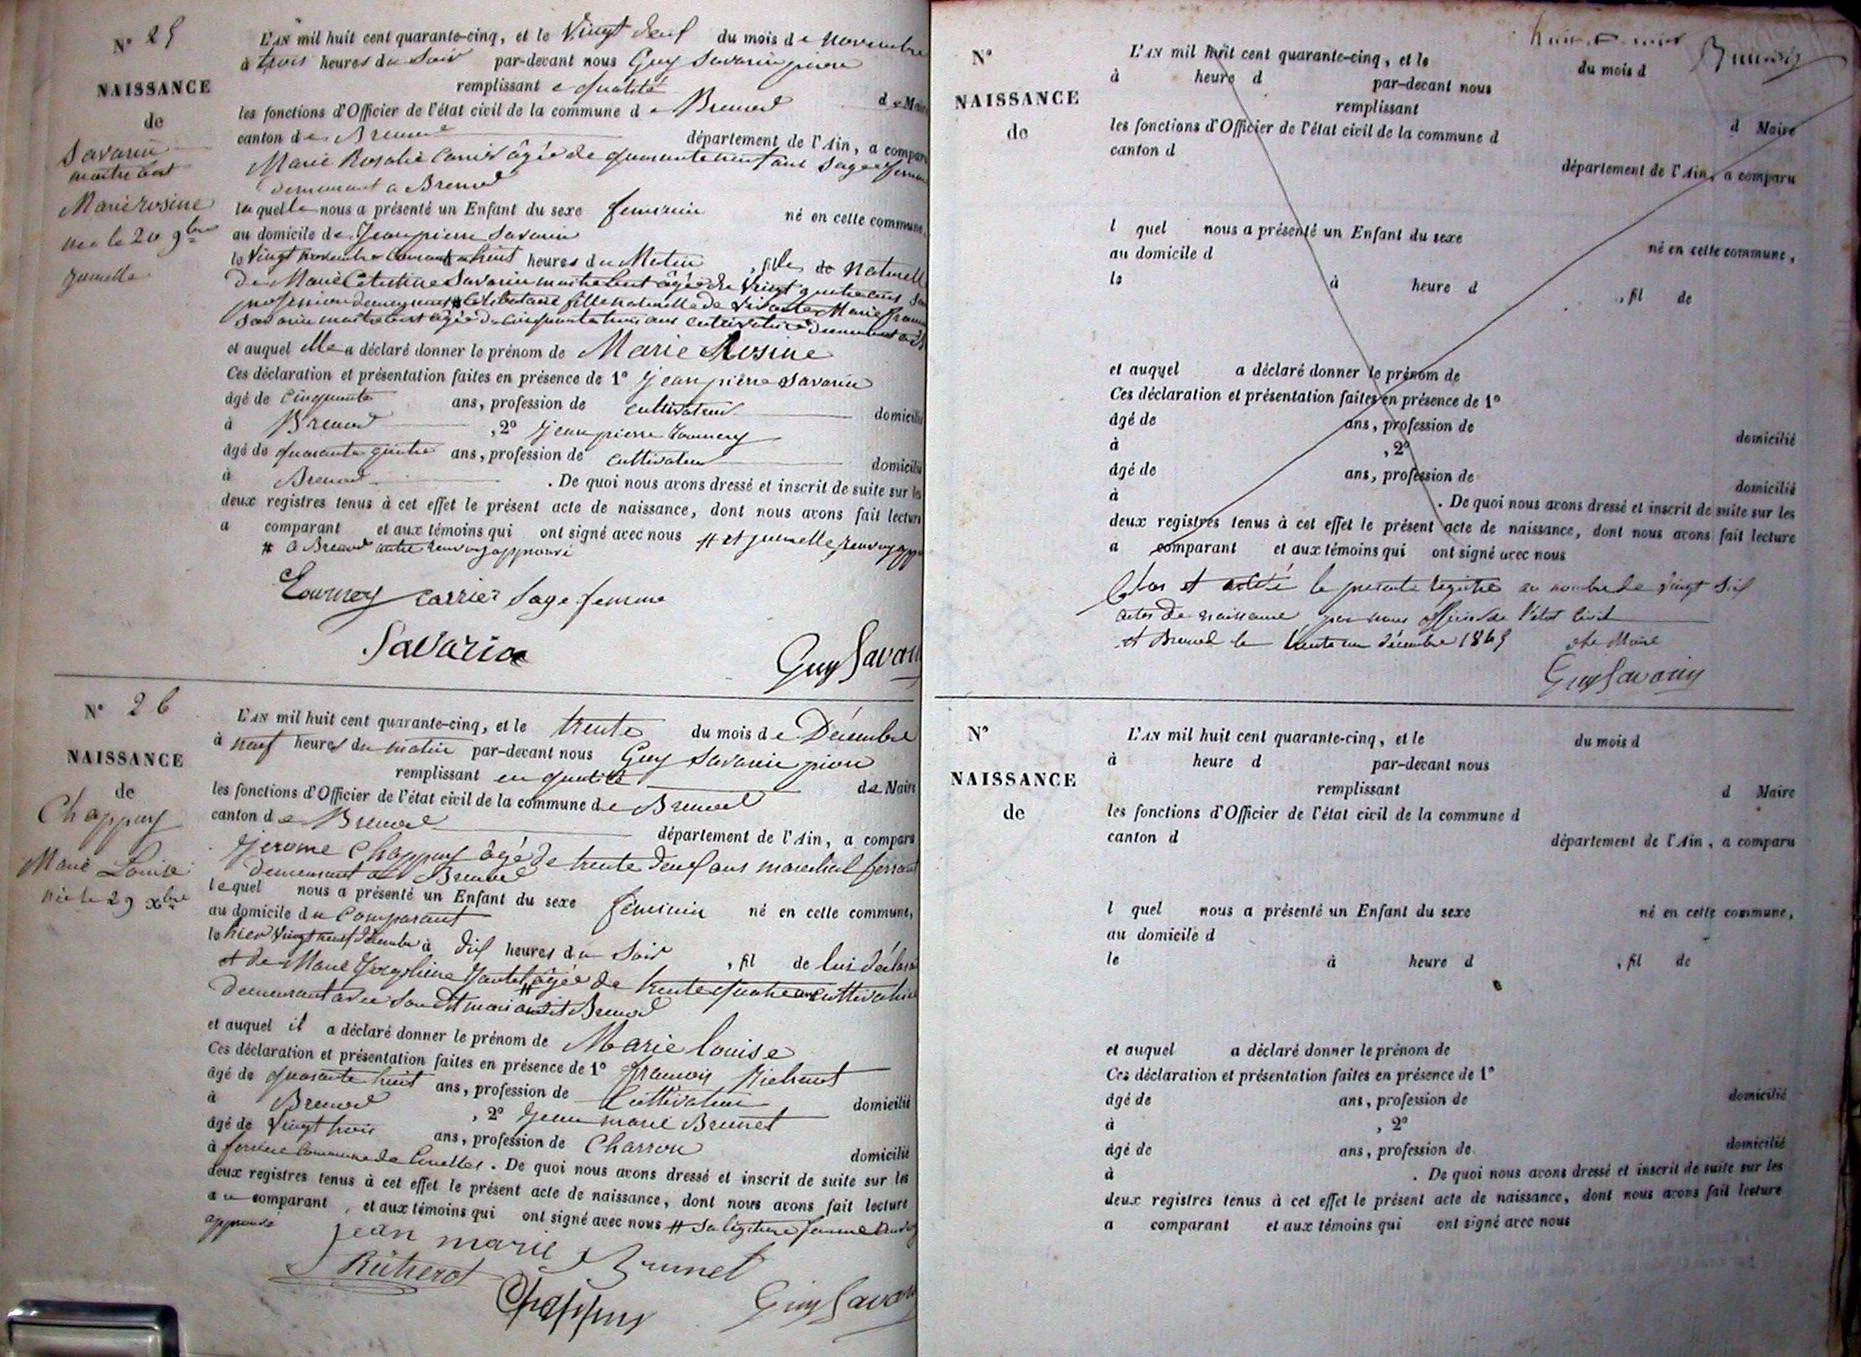 N° 25
NAISSANCE
de
Savarin
Marie rosine
née le 20 9bre
jumelle
L'AN mil huit cent quarante-cinq, et le vingt deux du mois de novembre
à trois heures du soir par-devant nous Guy Savarin
remplissant
les fonctions d'Officier de l'état civil de la commune de Brenod de Maire
canton de Brenod département de l'Ain, a comparu
Marie Rosalie Carrier âgée de quarante neuf ans Sage femme
demeurant à Brenod
laquelle nous a présenté un Enfant du sexe féminin né en cette commune,
au domicile de Jean pierre Savarin
le vingt novembre courant à huit heures du Matin, fille de naturelle
de Marie Savarin âgée de vingt quatre ans
fille naturelle de Marie
Savarin âgée de cinquante trois ans cultivatrice demeurant
et auquel elle a déclaré donner le prénom de Marie Rosine
Ces déclaration et présentation faites en présence de 1° Jean pierre Savarin
âgé de cinquante ans, profession de cultivateur domicilié
à Brenod, 2° Jean pierre
âgé de quarante quatre ans, profession de cultivateur domicilié
à Brenod. De quoi nous avons dressé et inscrit de suite sur les
deux registres tenus à cet effet le présent acte de naissance, dont nous avons fait lecture
a comparant et aux témoins qui ont signé avec nous # et jumelle renvoy
# à Brenod autre renvoy approuvé
carrier Sage-femme
Savarin
Guy Savarin
N° 26
NAISSANCE
de
Chappuy
Marie Louise
née le 29 xbre
L'AN mil huit cent quarante-cinq, et le trente du mois de Décembre
à neuf heures du matin par-devant nous Guy Savarin
remplissant en qualité de Maire
les fonctions d'Officier de l'état civil de la commune de Brenod
canton de Brenod département de l'Ain, a comparu
Jerome Chappuy âgé de trente deux ans marechal ferrant
demeurant à Brenod
lequel nous a présenté un Enfant du sexe féminin né en cette commune,
au domicile du comparant
le hier vingt neuf décembre à dix heures du Soir, fil de lui déclarant
et de Marie Josephine # âgée de trente quatre ans cultivatrice
demeurant avec son dit mari audit Brenod
et auquel il a déclaré donner le prénom de Marie Louise
Ces déclaration et présentation faites en présence de 1° françois
âgé de quarante huit ans, profession de Cultivateur domicilié
à Brenod, 2° Jean marie Brunet
âgé de vingt trois ans, profession de Charron domicilié
à commune de. De quoi nous avons dressé et inscrit de suite sur les
deux registres tenus à cet effet le présent acte de naissance, dont nous avons fait lecture
au comparant, et aux témoins qui ont signé avec nous # sa légitime femme
approuvé
Jean marie Brunet
Chappuy
Guy Savarin
N°
NAISSANCE
de
L'AN mil huit cent quarante-cinq, et le du mois d
à heure d par-devant nous
remplissant
les fonctions d'Officier de l'état civil de la commune d d Maire
canton d département de l'Ain, a comparu
l quel nous a présenté un Enfant du sexe né en cette commune,
au domicile d
le à heure d, fil de
et auquel a déclaré donner le prénom de
Ces déclaration et présentation faites en présence de 1°
âgé de ans, profession de domicilié
à, 2°
âgé de ans, profession de domicilié
à. De quoi nous avons dressé et inscrit de suite sur les
deux registres tenus à cet effet le présent acte de naissance, dont nous avons fait lecture
a comparant et aux témoins qui ont signé avec nous
Clos et arrêté le présent registre au nombre de vingt six
actes de naissance, par nous officier de l'état civil
A Brenod le trente un décembre 1845 Le Maire
Guy Savarin
N°
NAISSANCE
de
L'AN mil huit cent quarante-cinq, et le du mois d
à heure d par-devant nous
remplissant d Maire
les fonctions d'Officier de l'état civil de la commune d
canton d département de l'Ain, a comparu
l quel nous a présenté un Enfant du sexe né en cette commune,
au domicile d
le à heure d, fil de
et auquel a déclaré donner le prénom de
Ces déclaration et présentation faites en présence de 1°
âgé de ans, profession de domicilié
à, 2°
âgé de ans, profession de domicilié
à. De quoi nous avons dressé et inscrit de suite sur les
deux registres tenus à cet effet le présent acte de naissance, dont nous avons fait lecture
a comparant et aux témoins qui ont signé avec nous